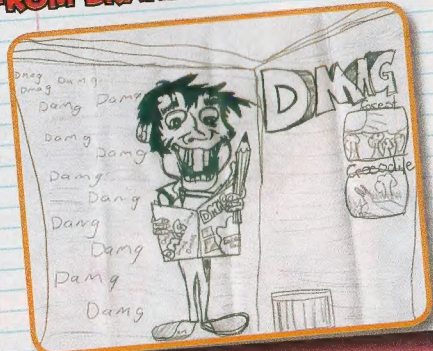 Dmag Damg
Dmag
Damg Damg
Damg
Damg
Damg
Damg
Damg
Damg
Damg
Damg
DMAG
forest
Crocodile